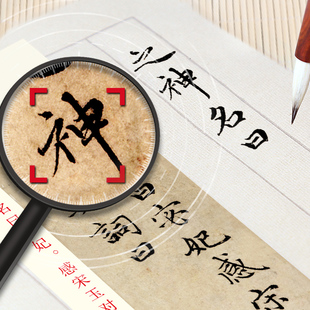 神
之神名曰
曰宓妃感宋
詞曰
妃。感宋玉对
名